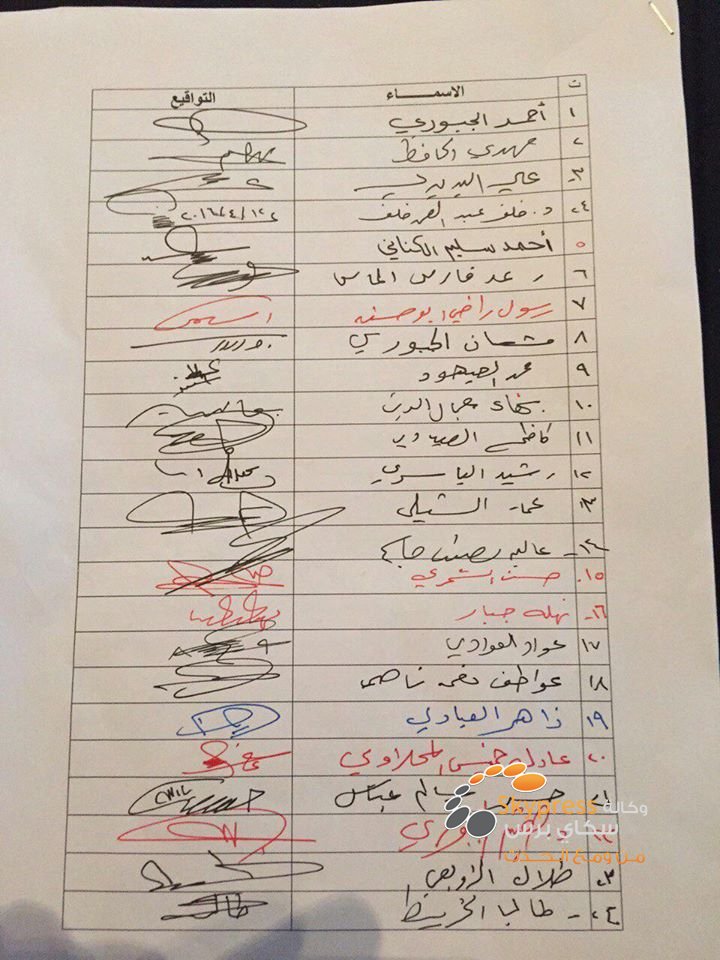 ت الاسمـــاء التواقيع
١ أحمد الجبوري
٢ مهدي الحافظ
٣ علي البديري
٤ د. خلف عبد الصمد خلف ٢٠١٦/٤/١٢
٥ أحمد سليم الكناني
٦ رعد فارس الماس
٧ رسول راضي ابو حسنه
٨ مشعان الجبوري
٩ محمد الصيهود
١٠ بهاء جمال الدين
١١ كاظم الصيادي
١٢ رشيد الياسري
١٣ عمار الشبلي
١٤ عاليه نصيف جاسم
١٥ حسن الشمري
١٦ نهله جبار
١٧ عواد العوادي
١٨ عواطف نعمه
١٩ زاهر العبادي
٢٠ عادل خميس المحلاوي
٢١ سالم عباس
٢٢
٢٣ طلال الزوبعي
٢٤ طالب الخربيط
وكالة Skypress
سكاي برس
من ومع الحدث